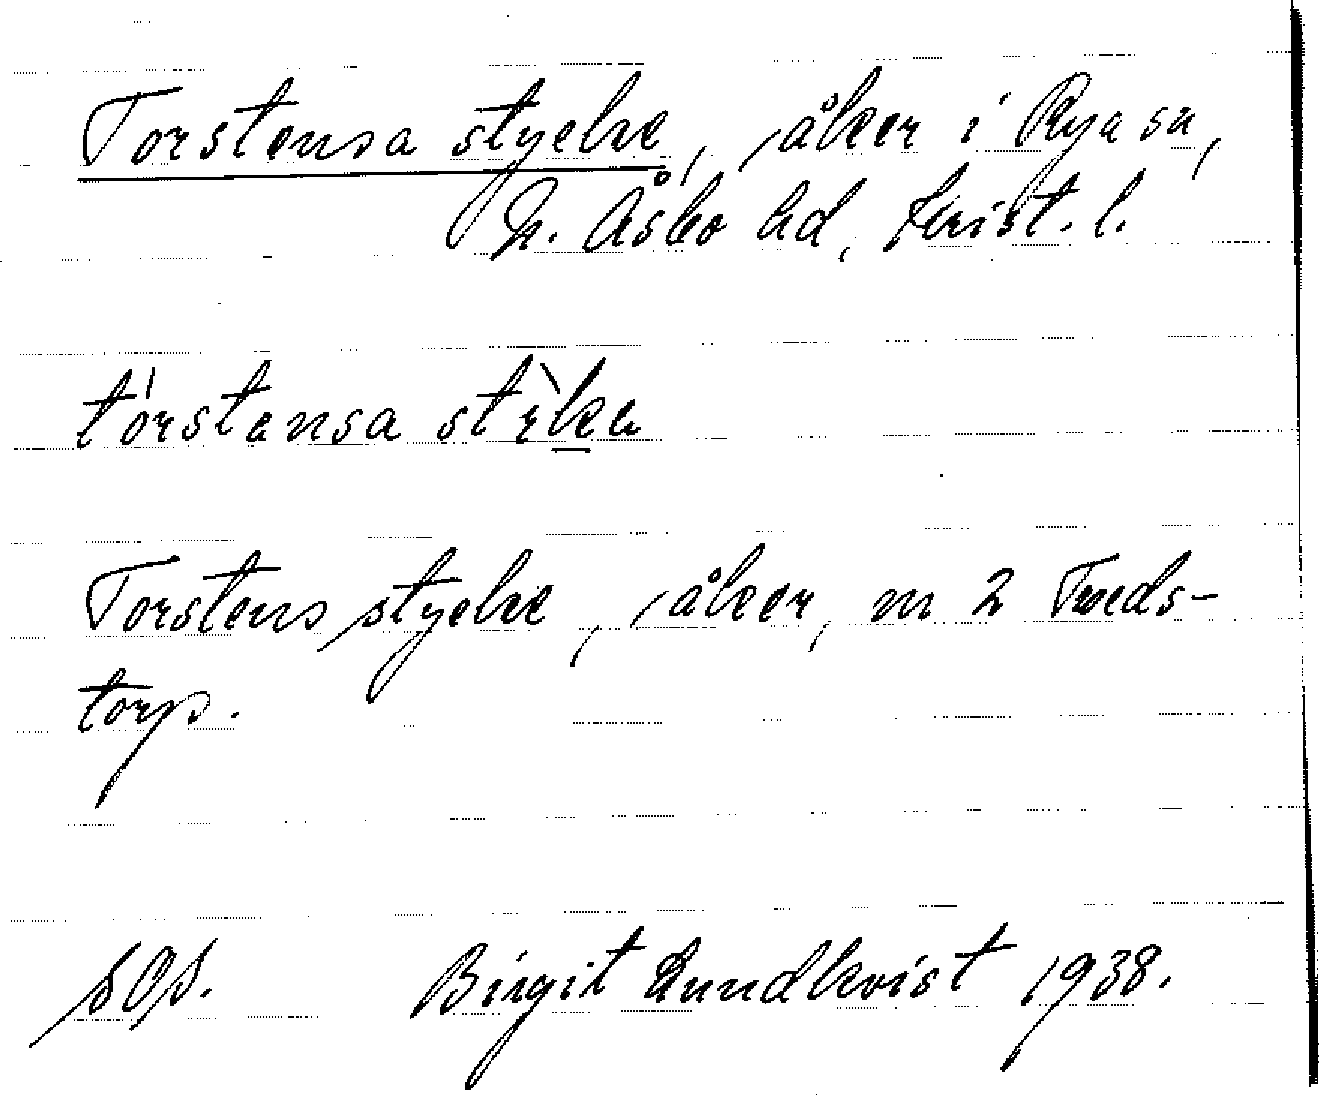 Torstensa stycke, åker i Rya sn,
N. Åsbo hd, Krist. l.
tórstansa stỳka
Torstens stycke, åker, m 2 Tveds-
torp.
Birgit Lundkvist 1938.